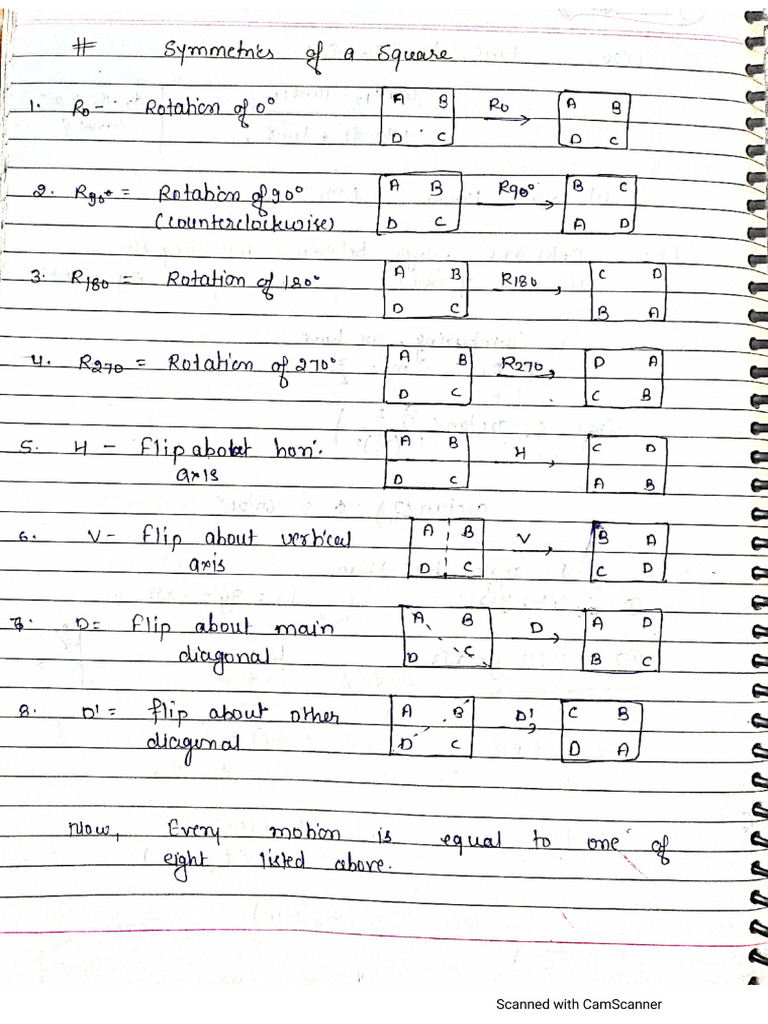 # Symmetries of a Square
1. R0 - Rotation of 0° A B R0 A B
D C D C
2. R90° = Rotation of 90° A B R90° B C
(counterclockwise) D C A D
3. R180 = Rotation of 180° A B R180 C D
D C B A
4. R270 = Rotation of 270° A B R270 D A
D C C B
5. H - flip about hori. A B H C D
axis D C A B
6. V - flip about vertical A B V B A
axis D C C D
7. D = flip about main A B D A D
diagonal D C B C
8. D' = flip about other A B D' C B
diagonal D C D A
Now, Every motion is equal to one of
eight listed above.
Scanned with CamScanner